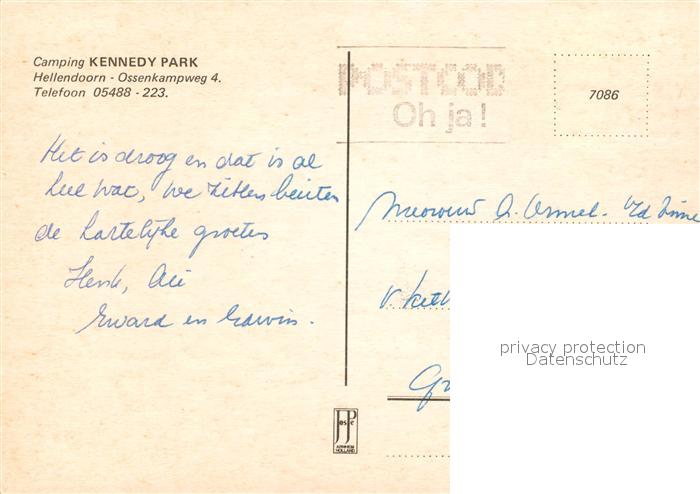 Camping KENNEDY PARK
Hellendoorn - Ossenkampweg 4.
Telefoon 05488 - 223.
POSTCOD
Oh ja!
7086
Het is droog en dat is al
heel wat, we zitten buiten
de hartelijke groeten
Henk,
en Edwin.
Mevrouw
v.
JosPé
ARNHEM
HOLLAND
privacy protection
Datenschutz